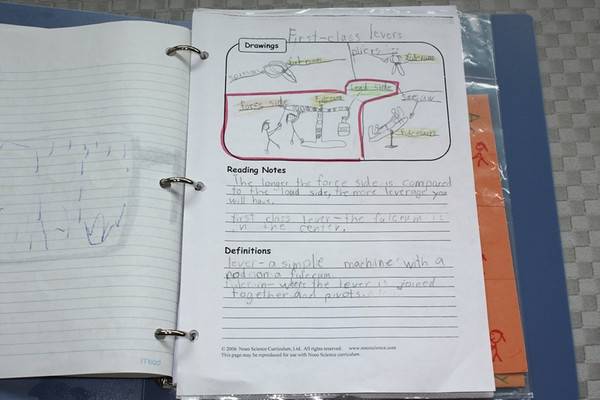 First-class levers
Drawings
pliers
fulcrum
fulcrum
load side
Force side
Fulcrum
Seesaw
Fulcrum
Reading Notes
The longer the force side is compared
to the load side, the more leverage you
will have.
first class lever-the fulcrum is
in the center.
Definitions
lever-a simple machine with a
rod on a fulcrum
fulcrum-where the lever is joined
together and pivots
© 2006 Noeo Science Curriculum, Ltd. All rights reserved. www.noeoscience.com
This page may be reproduced for use with Noeo Science curriculum.
mead